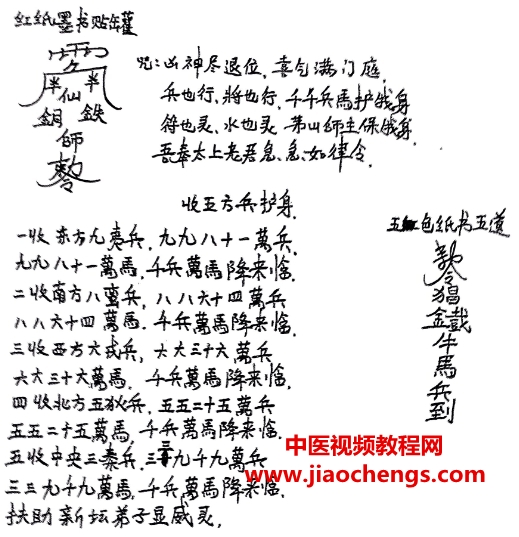 红纸墨书贴坛罐
咒:凶神尽退位,喜气满门庭,
兵也行,將也行,千千兵馬护我身
符也灵、水也灵 茅山師主保我身
吾奉太上老君急、急、如律令.
半 仙 半
銅 鉄
師
敕令
收五方兵护身.
一收东方九夷兵,九九八十一萬兵,
九九八十一萬馬,千兵萬馬降来临.
二收南方八蛮兵,八八六十四萬兵
八八六十四萬馬.千兵萬馬降来临.
三收西方六戎兵,六六三十六萬兵
六六三十六萬馬.千兵萬馬降来临,
四收北方五狄兵,五五二十五萬兵
五五二十五萬馬,千兵萬馬降来临.
五收中央三秦兵,三三九千九萬兵
三三九千九萬馬,千兵萬馬降来临.
扶助新坛弟子显威灵,
五色纸书五道
敕令猖鐵牛馬兵到
中医视频教程网
www.jiaochengs.com